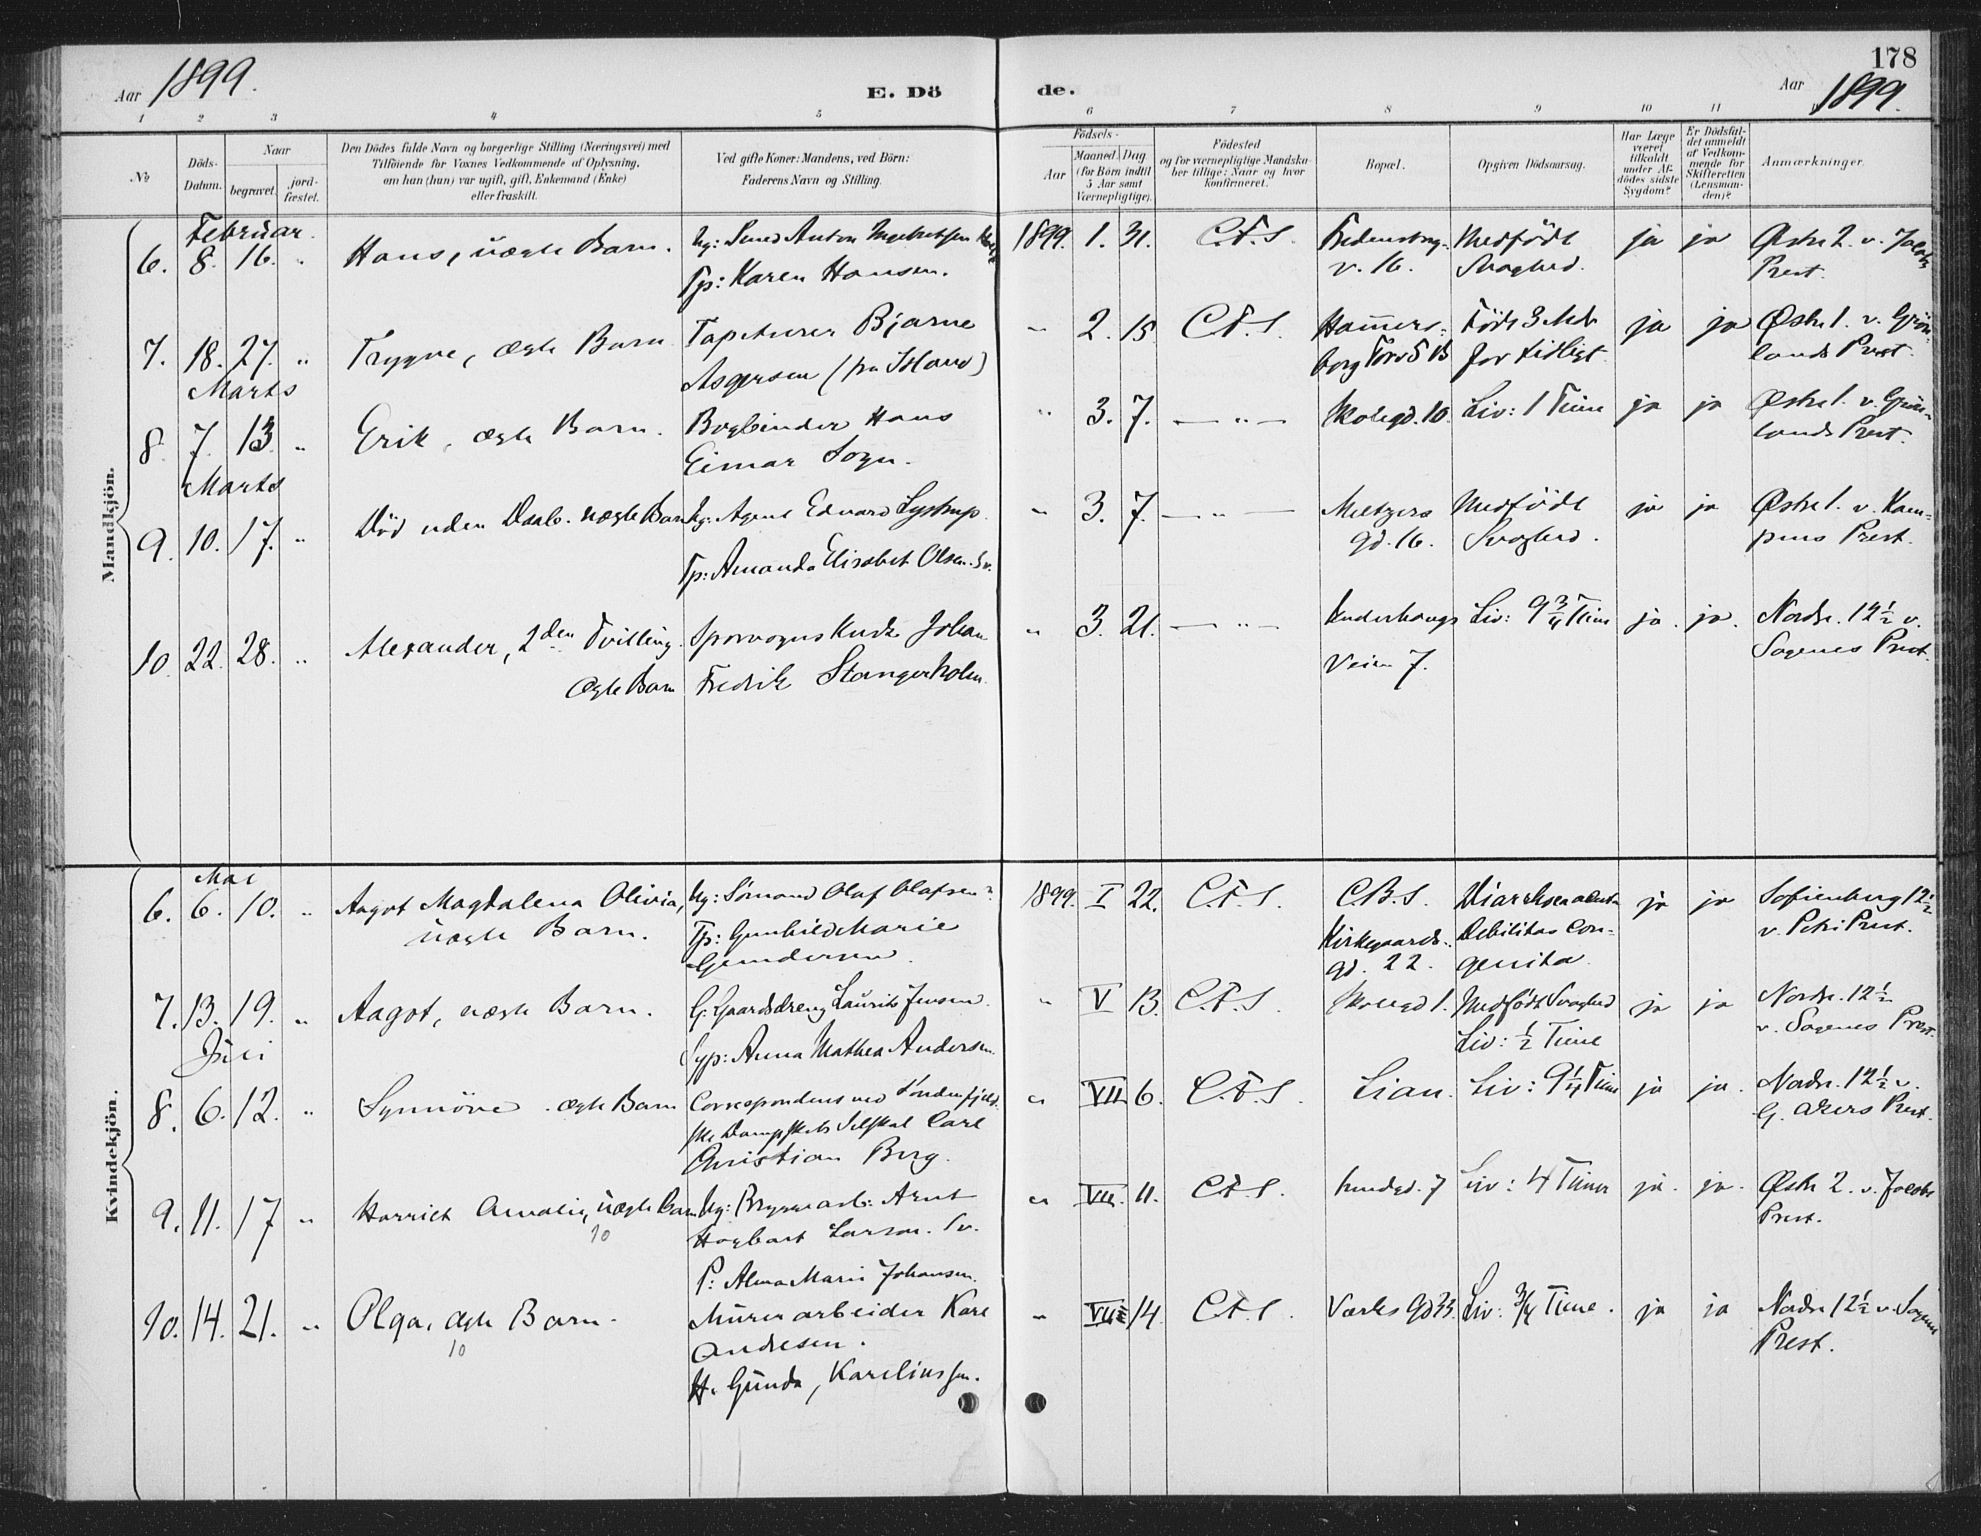 178
Aar 1899.
E. Dö
de.
Aar 1899.
1 2 3 4 5 6 7 8 9 10 11
No
Döds-
Datum.
Naar
begravet.
jord-
fæstet.
Den Dödes fulde Navn og borgerlige Stilling (Næringsvei) med
Tilföiende for Voxnes Vedkommende af Oplysning,
om han (hun) var ugift, gift, Enkemand (Enke)
eller fraskilt.
Ved gifte Koner: Mandens, ved Börn:
Faderens Navn og Stilling.
Födsels-
Aar
Maaned. Dag
(for Börn indtil
5 Aar samt
Værnepligtige).
Födested
og for værnepligtige Mandska-
ber tillige: Naar og hvor
konfirmeret.
Bopæl.
Opgiven Dödsaarsag.
Har Læge
været
tilkaldt
under Af-
dödes sidste
Sygdom?
Er Dödsfal-
det anmeldt
af Vedkom-
mende for
Skifteretten
(Lensman-
den)?
Anmærkninger.
Mandkjön.
Februar.
6. 8. 16. " Hans, uægte Barn. Ug: Smed Anton
Tp: Karen Hansen.
1899. 1. 31. C.F.S. Fredensborg-
v. 16.
Medfödt
Svaghed.
ja ja Østre 2. v. Jacobs
Prest.
7. 18. 27. " Trygve, ægte Barn Tapetserer Bjarne
Asgersen (fra Island)
" 2. 15 C.F.S. Hammers-
borg Torv 5 B
Födt 3 Mdr
for tidligt
ja ja Østre 1. v. Grön-
lands Prest.
Marts
8. 7. 13. " Erik, ægte Barn. Bogbinder Hans
Eimar Sogn.
" 3. 7. — " — Skolegd. 10. Liv: 1 Time ja ja Østre 1. v. Grön-
lands Prest.
Marts
9. 10. 17. " Död uden Daab. uægte Barn Ug: Agent Edvard Lystrup.
Tp: Amanda Elisabet Olsen. Sv.
" 3. 7. — " — Meltzers
gd. 16.
Medfödt
Svaghed.
ja ja Østre 1. v. Kam-
pens Prest.
10. 22. 28. " Alexander, 2den Tvilling.
ægte Barn
Sporvognskudsk Johan
Fredrik Stangerholm.
" 3. 21. — " —
Veien 7.
Liv: 9 3/4 Time ja. ja. Nordre. 12 1/2 v.
Sagenes Prest.
Kvindekjön.
Mai
6. 6. 10. " Aagot Magdalena Olivia,
uægte Barn.
Ug: Sömand Olaf Olafsen
Tp: Gunhild Marie
Gundersen.
1899. I 22. C.F.S. C.B.S.
Kirkegaards-
gd. 22.
Diarrhoea acuta
Debilitas Con-
genita
ja ja Sofienberg 12 1/2
v. Petri Prest.
7. 13. 19. " Aagot, uægte Barn. G. Gaardsdreng Laurits Jensen.
Syp: Anna Mathea Andersen.
" V 13. C.F.S. Skolegd 1. Medfödt Svaghed
Liv: 1/2 Time
ja ja Nordre. 12 1/2
v. Sagenes Prest.
Juli
8. 6. 12. " Synnöve. ægte Barn Correspondent ved Söndenfjeld-
ske Dampskibs Selskab Carl
Christian Berg.
" VII 6. C.F.S. Lian. Liv: 9 1/4 Time ja ja. Nordre. 12 1/2 v.
G. Akers Prest.
9. 11. 17 " Harriet Amalie, uægte Barn
10
Ug: Bryggearb: Arnt
Hagbart Larsen. Sv.
P: Alma Marie Johansen.
" VII. 11. C.F.S. Lundgd. 7 Liv: 4 Timer ja. ja. Østre 2. v. Jacobs
Prest.
10. 14. 21. " Olga, ægte Barn.
10
Murerarbeider Karl
Andresen.
H. Gunda, Karelinssen.
" VII 14. C.F.S. Værksgd 33. Liv: 3/4 Time. ja ja Nordre 12 1/2 v. Sagenes
Prest.